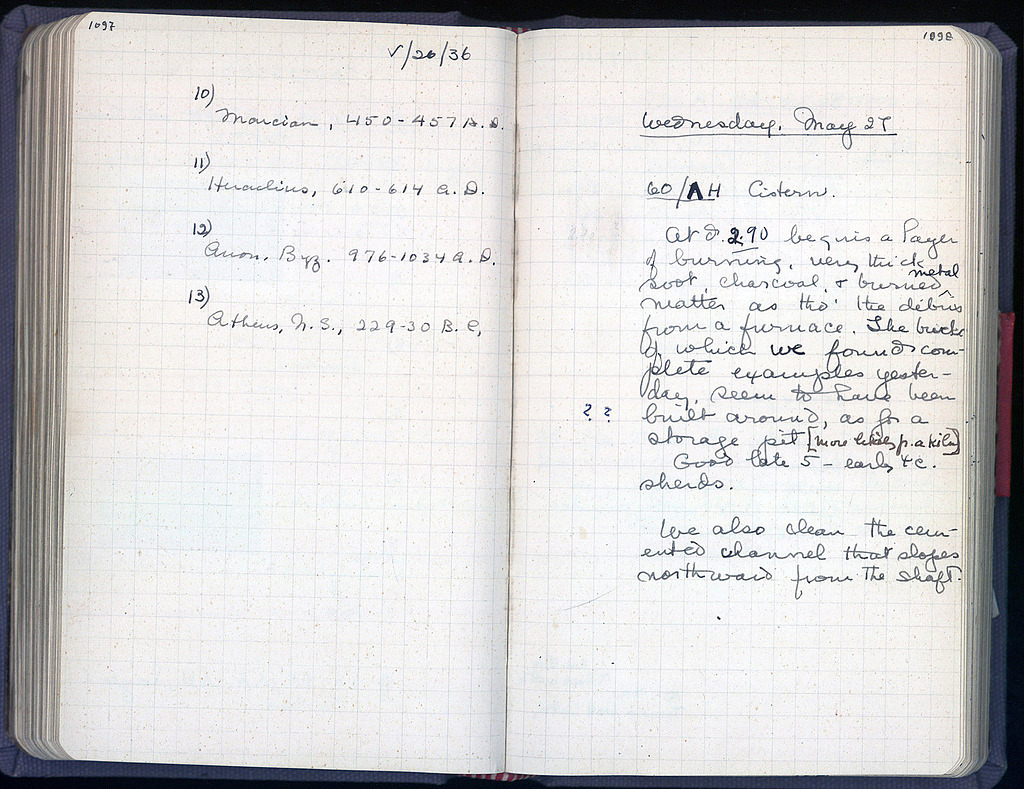 1097
V/26/36
10)
Marcian, 450-457 A.D.
11)
Heraclius, 610-614 A.D.
12)
Anon. Byz. 976-1034 A.D.
13)
Athens, N.S., 229-30 B.C.
1098
Wednesday, May 27
60/ΛH Cistern.
At d. 2.90 begins a layer
of burning, very thick
soot, charcoal, & burned metal
matter as tho' the débris
from a furnace. The bricks
of which we found com-
plete examples yester-
day, seem to have been
? ? built around, as for a
storage pit [more likely f. a kiln]
Good late 5 - early 4 c.
sherds.
We also clean the cem-
ented channel that slopes
northward from the shaft.